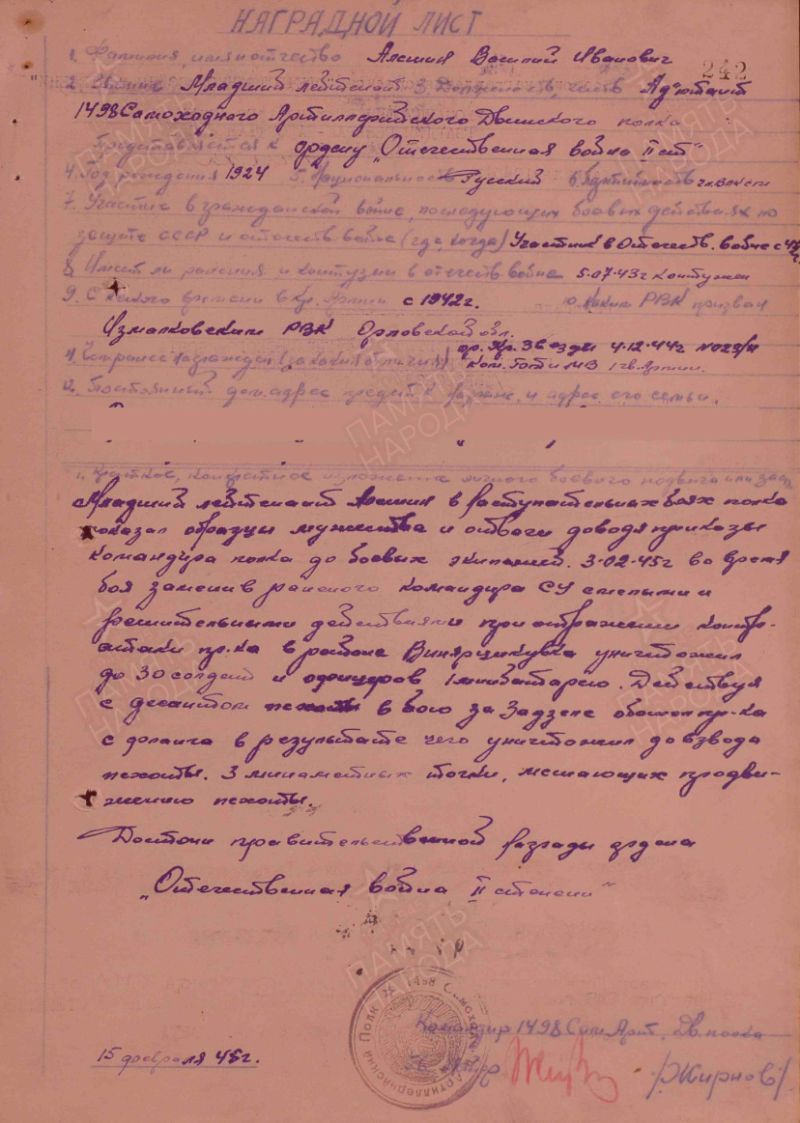 НАГРАДНОЙ ЛИСТ
1. Фамилия, имя и отчество Алешин Василий Иванович
242
2. Звание Младший лейтенант 3. Должность, часть Адъютант
1498 Самоходного Артиллерийского Двинского полка
Представляется к ордену „Отечественная война II ст"
4. Год рождения 1924 5. Национальность Русский 6. Партийность чл. ВЛКСМ
7. Участие в гражданской войне, последующих боевых действиях по
защите СССР и отечеств. войне (где, когда) Участник в Отечеств. войне с
8. Имеет ли ранения и контузии в отечеств. войне 5.07.43г контужен
9. С какого времени в Кр. Армии с 1942г. 10. Каким РВК призван
Измалковским РВК Орловской обл.
11. Чем ранее награжден (за какие отличия) ор. Кр. Звезды 4.12.44г №023/н
Ком. БТ и МВ 1 гв. Армии.
12. Постоянный дом. адрес предст. к награжд. и адрес его семьи.
1. Краткое, конкретное изложение личного боевого подвига или засл.
Младший лейтенант Алешин в наступательных боях полка
показал образцы мужества и отваги доводя приказы
командира полка до боевых экипажей. 3.02.45г во время
боя заменив раненого командира СУ смелыми и
решительными действиями при отражении контр-
атаки пр-ка в районе уничтожил
до 30 солдат и офицеров 1 минбатарею. Действуя
с десантом пехоты в бою за Задзеле обошел пр-ка
с фланга в результате чего уничтожил до взвода
пехоты. 3 минометных точки, мешающих продви-
жению пехоты.
Достоин правительственной награды ордена
„Отечественная война II степени"
Командир 1498 Сам. Арт. Дв. полка
15 февраля 45г.
/Жирнов/
1498 Самоходный Артиллерийский Полк
ПАМЯТЬ НАРОДА